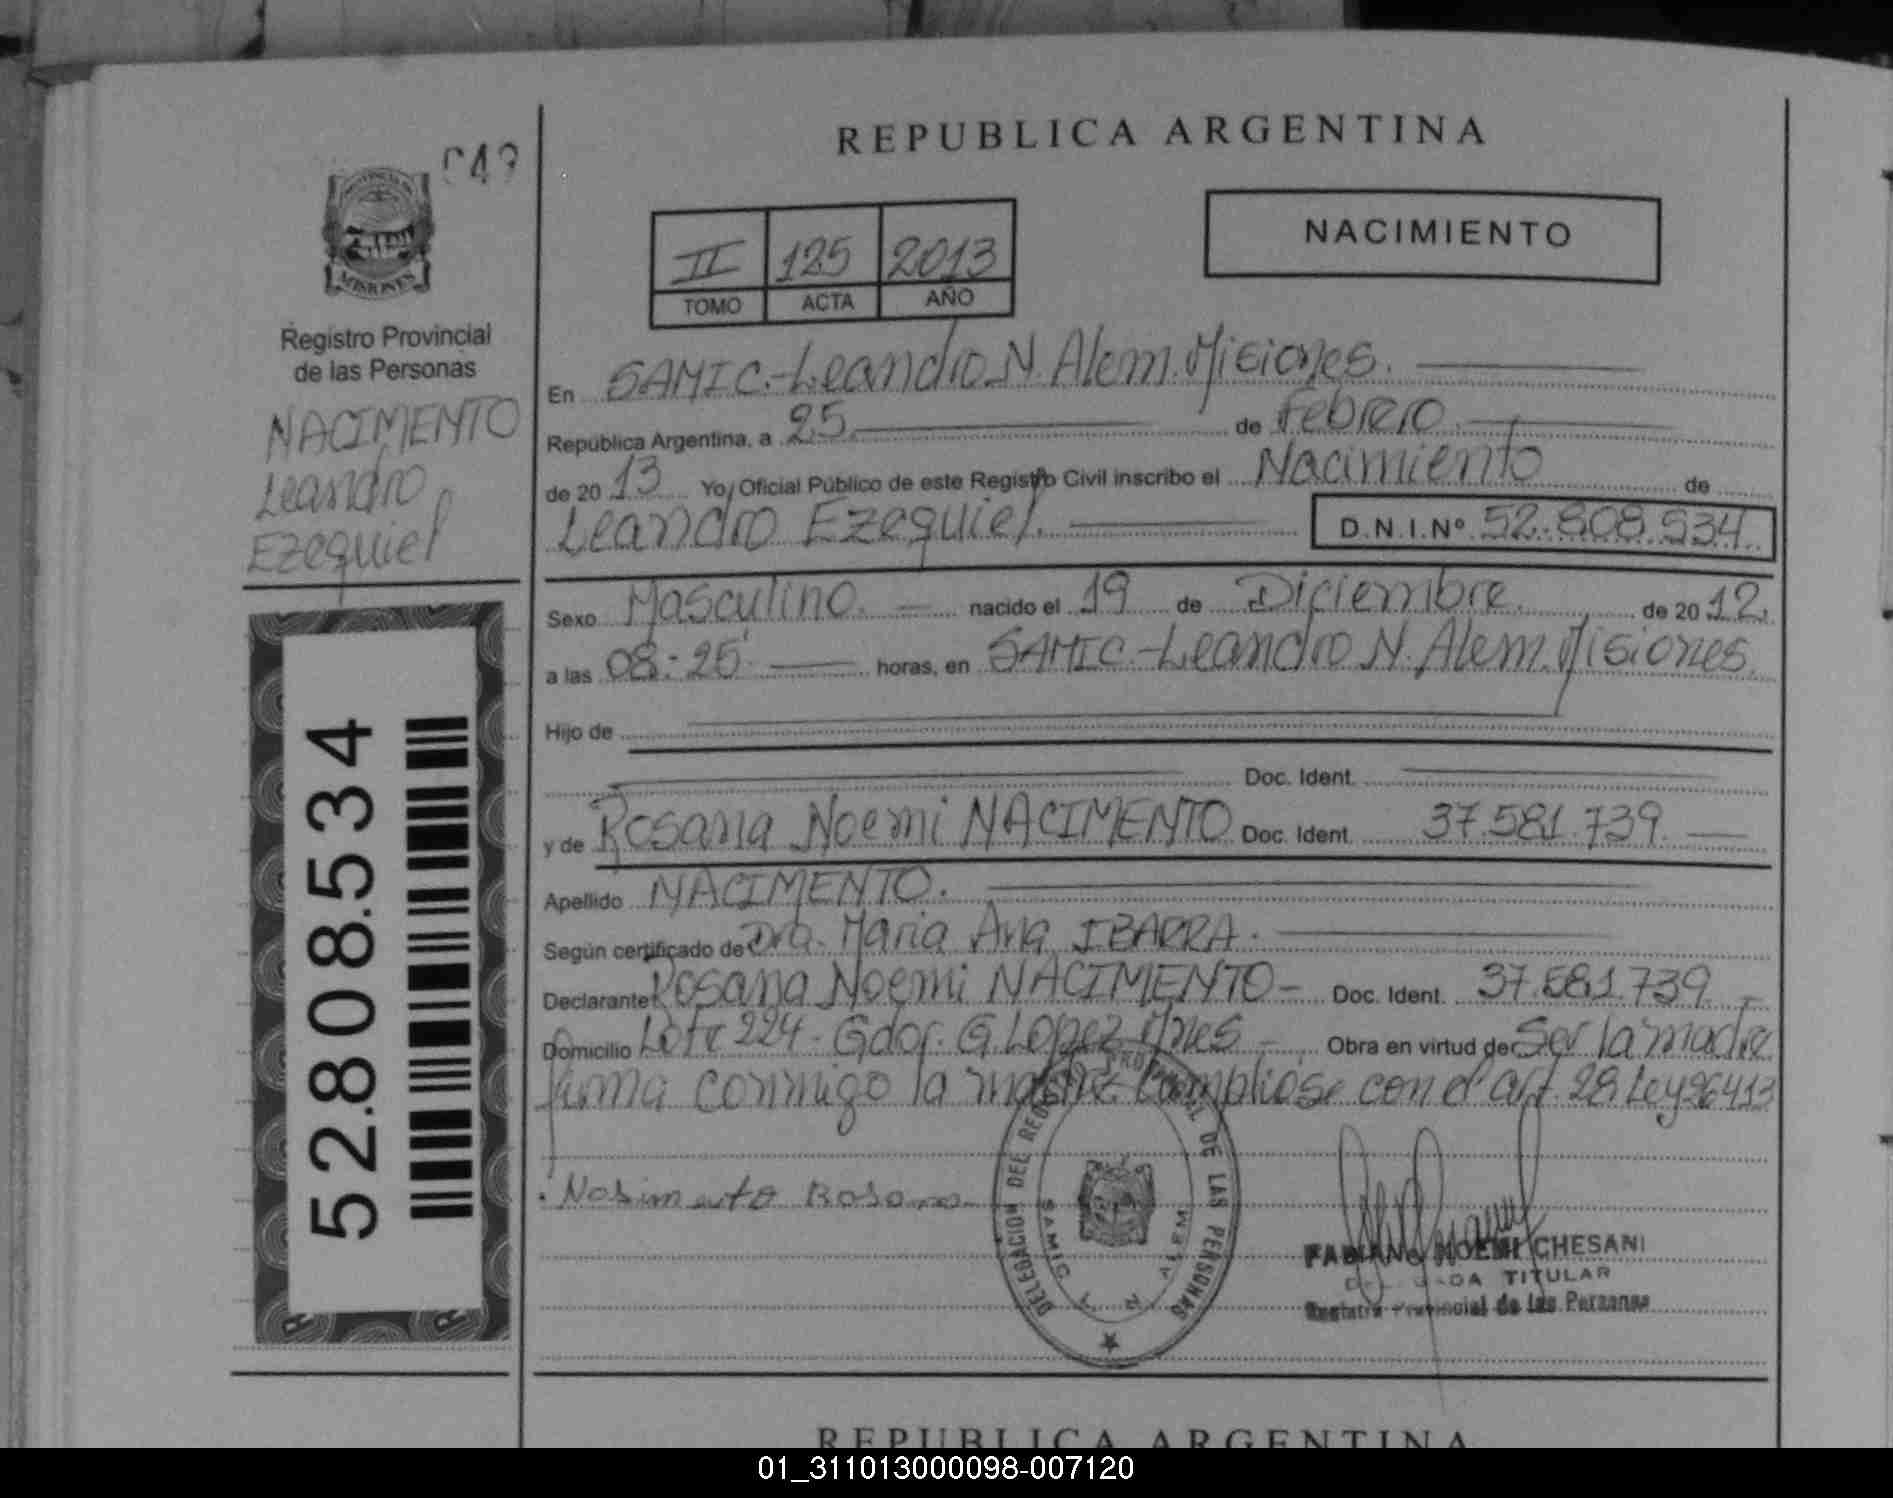 REPUBLICA ARGENTINA
049
MISIONES
Registro Provincial
de las Personas
NACIMENTO
Leandro
Ezequiel
52.808.534
II 125 2013
TOMO ACTA AÑO
NACIMIENTO
En SAMIC.-Leandro N. Alem. Misiones.
República Argentina, a 25 de Febrero
de 20 13 Yo, Oficial Público de este Registro Civil inscribo el Nacimiento de
Leandro Ezequiel. D.N.I.Nº 52.808.534
Sexo Masculino. nacido el 19 de Diciembre de 20 12.
a las 08:25 horas, en SAMIC.-Leandro N. Alem. Misiones.
Hijo de
Doc. Ident.
y de Rosana Noemi NACIMENTO Doc. Ident. 37.581.739.
Apellido NACIMENTO.
Según certificado de Dra. Maria Ana IBARRA.
Declarante Rosana Noemi NACIMENTO- Doc. Ident. 37.581.739
Domicilio Lote 224- Gdor. G. Lopez. Mnes - Obra en virtud de Ser la madre
firma conmigo la madre. Cumpliose con el art. 28 Ley 26413
Nasimento Rosana
DELEGACION DEL REGISTRO PROVINCIAL DE LAS PERSONAS
SAMIC L. N. ALEM
FABIANA NOEMI CHESANI
DELEGADA TITULAR
Registro Provincial de las Personas
REPUBLICA ARGENTINA
01_311013000098-007120